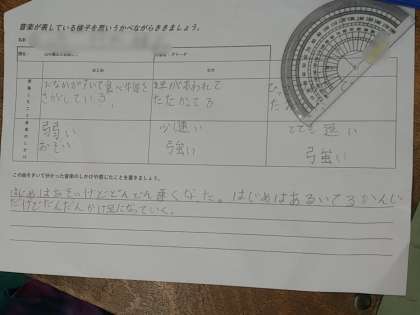 音楽が表している様子を思いうかべながらききましょう。
名前
はじめ
なか
おなかがすいて食べ物を
さがしている
敵があらわれて
たたかてる
弱い
おそい
少し速い
強い
とても速い
強い
この曲をきいて分かった音楽のしかけや感じたことを書きましょう。
はじめはおそいけどどんどん速くなった。はじめはあるいてるかんじ
だけどだんだんかけ足になっていく。